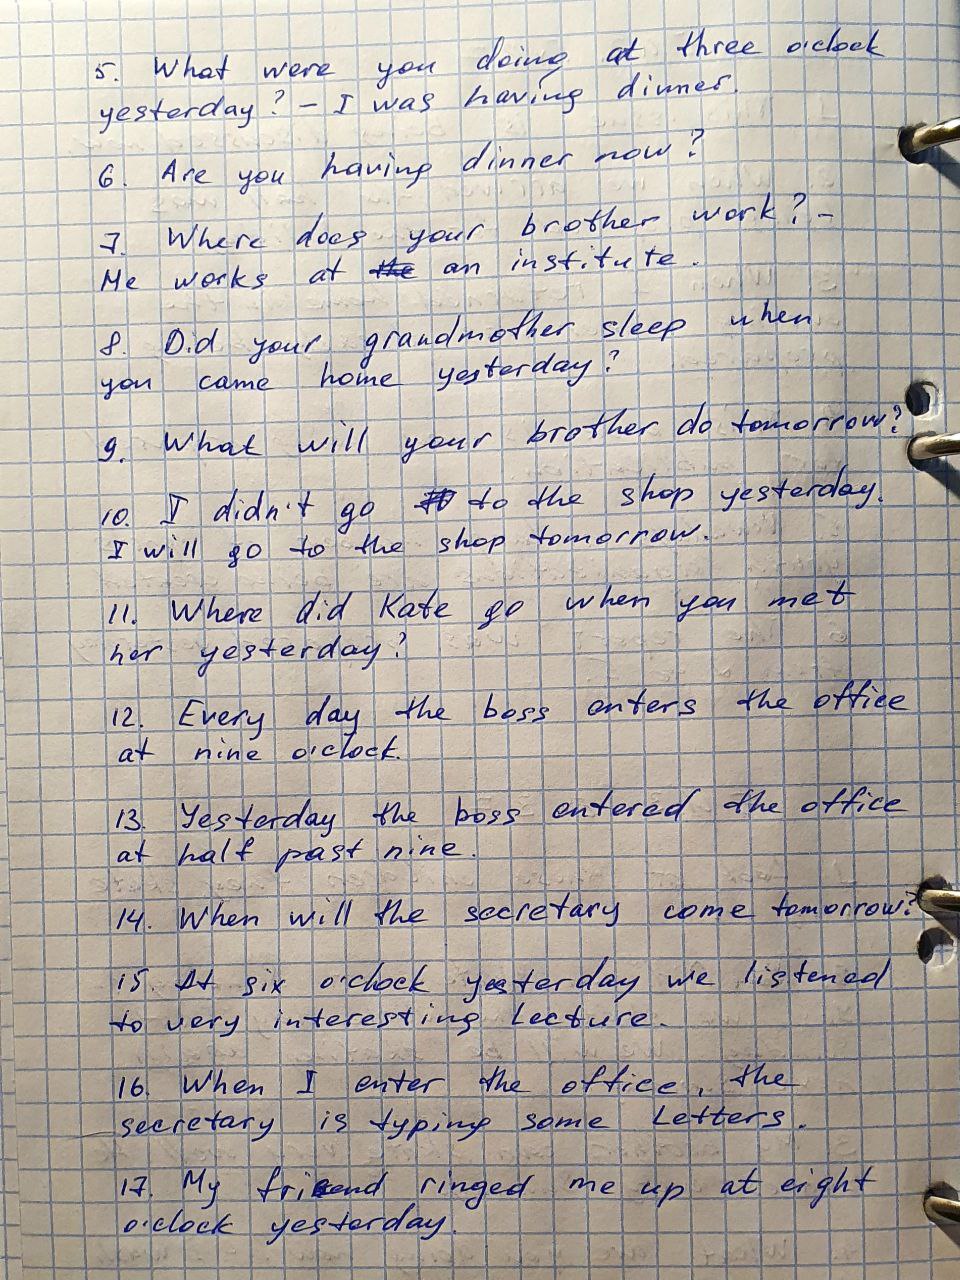 5. What were you doing at three o'clock
yesterday? – I was having dinner.
6. Are you having dinner now?
7. Where does your brother work? –
He works at the an institute.
8. Did your grandmother sleep when
you came home yesterday?
9. What will your brother do tomorrow?
10. I didn't go to the shop yesterday.
I will go to the shop tomorrow.
11. Where did Kate go when you met
her yesterday?
12. Every day the boss enters the office
at nine o'clock.
13. Yesterday the boss entered the office
at half past nine.
14. When will the secretary come tomorrow?
15. At six o'clock yesterday we listened
to very interesting lecture.
16. When I enter the office, the
secretary is typing some letters.
17. My friend ringed me up at eight
o'clock yesterday.